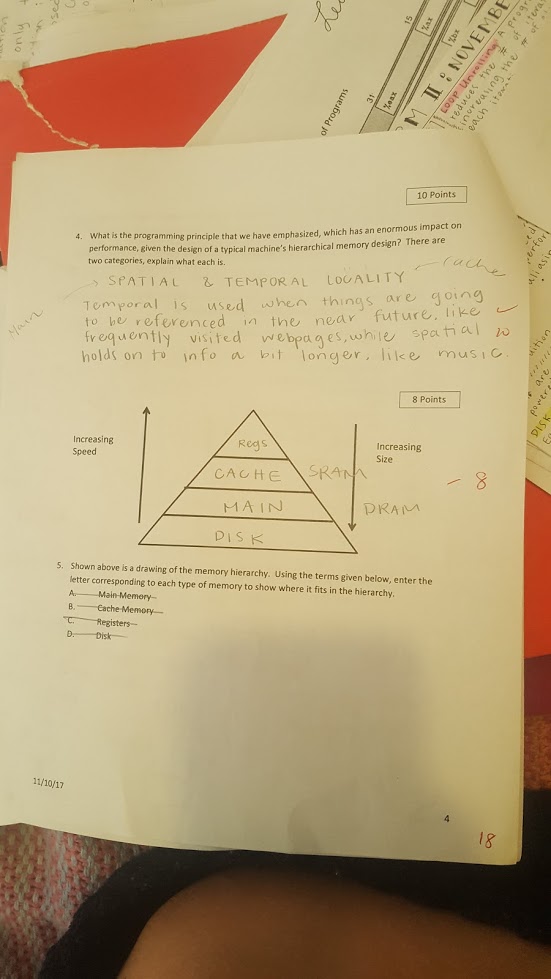 15
%ax
%bx
31
%eax
of Programs
M II : NOVEMBE
LOOP Unrolling: A progr
reduces the # of itera
increasing the #
each itera
10 Points
4. What is the programming principle that we have emphasized, which has an enormous impact on
performance, given the design of a typical machine's hierarchical memory design? There are
two categories, explain what each is.
cache
SPATIAL & TEMPORAL LOCALITY
Main
Temporal is used when things are going
to be referenced in the near future, like
frequently visited webpages, while spatial
holds on to info a bit longer, like music.
8 Points
Increasing
Speed
Regs
CACHE SRAM
MAIN DRAM
DISK
Increasing
Size
- 8
5. Shown above is a drawing of the memory hierarchy. Using the terms given below, enter the
letter corresponding to each type of memory to show where it fits in the hierarchy.
A. Main Memory
B. Cache Memory
C. Registers
D. Disk
11/10/17
4
18